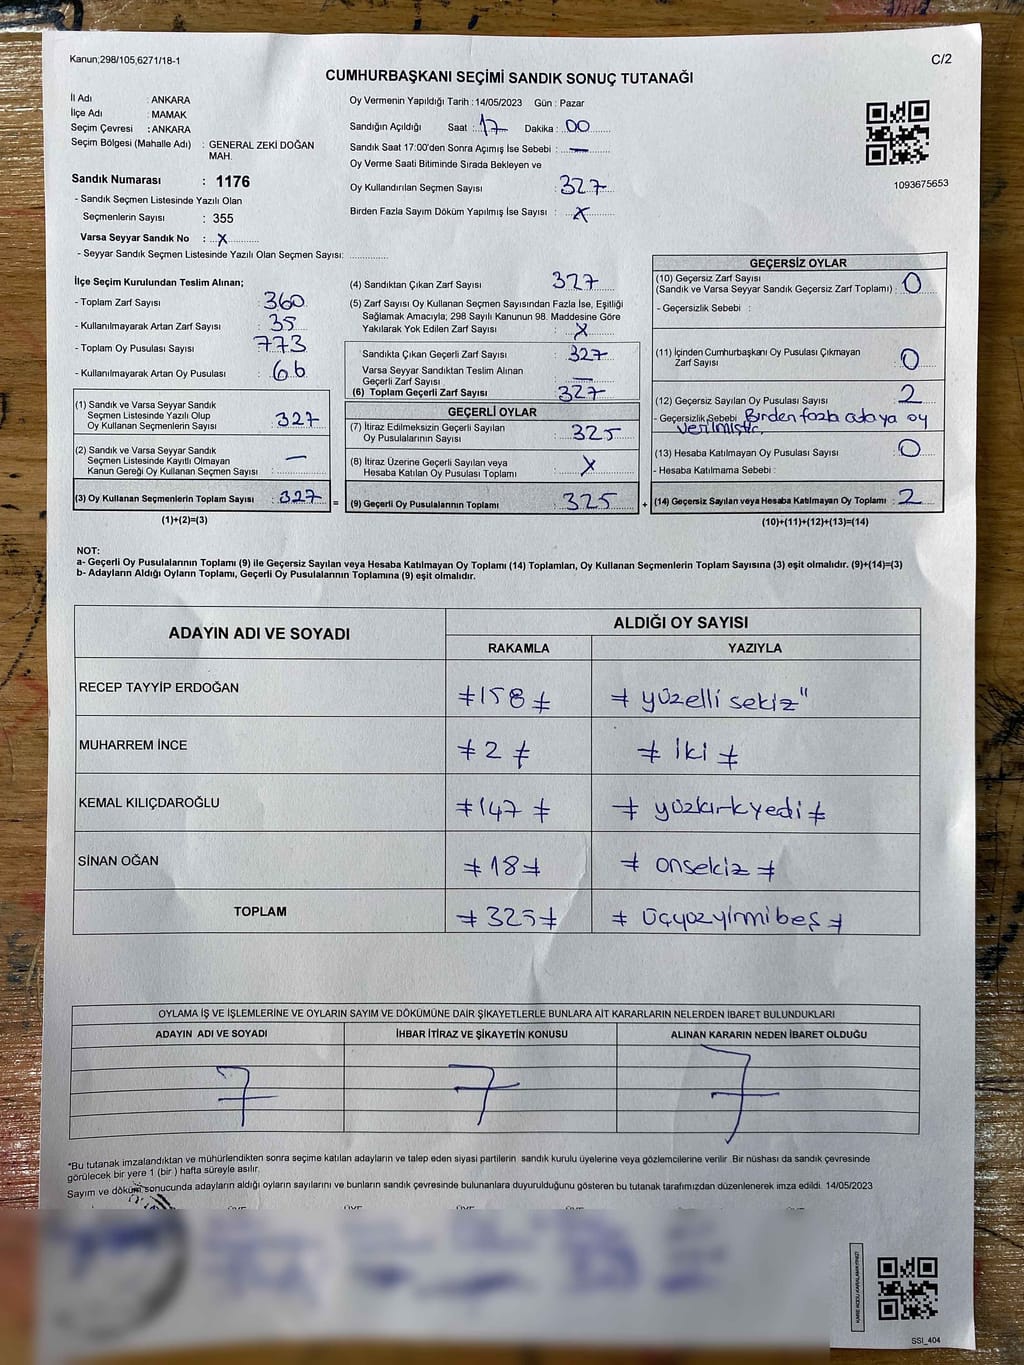 Kanun;298/105,6271/18-1
C/2
CUMHURBAŞKANI SEÇİMİ SANDIK SONUÇ TUTANAĞI
İl Adı : ANKARA
İlçe Adı : MAMAK
Seçim Çevresi : ANKARA
Seçim Bölgesi (Mahalle Adı) : GENERAL ZEKİ DOĞAN
MAH.
Sandık Numarası : 1176
- Sandık Seçmen Listesinde Yazılı Olan
Seçmenlerin Sayısı : 355
Varsa Seyyar Sandık No : X
- Seyyar Sandık Seçmen Listesinde Yazılı Olan Seçmen Sayısı:
Oy Vermenin Yapıldığı Tarih : 14/05/2023 Gün : Pazar
Sandığın Açıldığı Saat : 17 Dakika : 00
Sandık Saat 17:00'den Sonra Açımış İse Sebebi : —
Oy Verme Saati Bitiminde Sırada Bekleyen ve
Oy Kullandırılan Seçmen Sayısı : 327
Birden Fazla Sayım Döküm Yapılmış İse Sayısı : X
1093675653
İlçe Seçim Kurulundan Teslim Alınan;
- Toplam Zarf Sayısı : 360
- Kullanılmayarak Artan Zarf Sayısı : 35
- Toplam Oy Pusulası Sayısı : 773
- Kullanılmayarak Artan Oy Pusulası : 66
(1) Sandık ve Varsa Seyyar Sandık
Seçmen Listesinde Yazılı Olup
Oy Kullanan Seçmenlerin Sayısı : 327
(2) Sandık ve Varsa Seyyar Sandık
Seçmen Listesinde Kayıtlı Olmayan
Kanun Gereği Oy Kullanan Seçmen Sayısı : —
(3) Oy Kullanan Seçmenlerin Toplam Sayısı : 327 =
(1)+(2)=(3)
(4) Sandıktan Çıkan Zarf Sayısı : 327
(5) Zarf Sayısı Oy Kullanan Seçmen Sayısından Fazla İse, Eşitliği
Sağlamak Amacıyla; 298 Sayılı Kanunun 98. Maddesine Göre
Yakılarak Yok Edilen Zarf Sayısı : X
Sandıkta Çıkan Geçerli Zarf Sayısı : 327
Varsa Seyyar Sandıktan Teslim Alınan
Geçerli Zarf Sayısı : —
(6) Toplam Geçerli Zarf Sayısı : 327
GEÇERLİ OYLAR
(7) İtiraz Edilmeksizin Geçerli Sayılan
Oy Pusulalarının Sayısı : 325
(8) İtiraz Üzerine Geçerli Sayılan veya
Hesaba Katılan Oy Pusulası Toplamı : X
(9) Geçerli Oy Pusulalarının Toplamı : 325 +
GEÇERSİZ OYLAR
(10) Geçersiz Zarf Sayısı
(Sandık ve Varsa Seyyar Sandık Geçersiz Zarf Toplamı) : 0
- Geçersizlik Sebebi :
(11) İçinden Cumhurbaşkanı Oy Pusulası Çıkmayan
Zarf Sayısı : 0
(12) Geçersiz Sayılan Oy Pusulası Sayısı : 2
- Geçersizlik Sebebi : Birden fazla adaya oy
verilmiştir.
(13) Hesaba Katılmayan Oy Pusulası Sayısı : 0
- Hesaba Katılmama Sebebi :
(14) Geçersiz Sayılan veya Hesaba Katılmayan Oy Toplamı : 2
(10)+(11)+(12)+(13)=(14)
NOT:
a- Geçerli Oy Pusulalarının Toplamı (9) ile Geçersiz Sayılan veya Hesaba Katılmayan Oy Toplamı (14) Toplamları, Oy Kullanan Seçmenlerin Toplam Sayısına (3) eşit olmalıdır. (9)+(14)=(3)
b- Adayların Aldığı Oyların Toplamı, Geçerli Oy Pusulalarının Toplamına (9) eşit olmalıdır.
ADAYIN ADI VE SOYADI
ALDIĞI OY SAYISI
RAKAMLA YAZIYLA
RECEP TAYYİP ERDOĞAN ≠158≠ ≠ yüzelli sekiz"
MUHARREM İNCE ≠ 2 ≠ ≠ iki ≠
KEMAL KILIÇDAROĞLU ≠147 ≠ ≠ yüzkırkyedi ≠
SİNAN OĞAN ≠18≠ ≠ onsekiz ≠
TOPLAM ≠325≠ ≠ üçyüzyirmibeş ≠
OYLAMA İŞ VE İŞLEMLERİNE VE OYLARIN SAYIM VE DÖKÜMÜNE DAİR ŞİKAYETLERLE BUNLARA AİT KARARLARIN NELERDEN İBARET BULUNDUKLARI
ADAYIN ADI VE SOYADI İHBAR İTİRAZ VE ŞİKAYETİN KONUSU ALINAN KARARIN NEDEN İBARET OLDUĞU
*Bu tutanak imzalandıktan ve mühürlendikten sonra seçime katılan adayların ve talep eden siyasi partilerin sandık kurulu üyelerine veya gözlemcilerine verilir. Bir nüshası da sandık çevresinde
görülecek bir yere 1 (bir ) hafta süreyle asılır.
Sayım ve döküm sonucunda adayların aldığı oyların sayılarını ve bunların sandık çevresinde bulunanlara duyurulduğunu gösteren bu tutanak tarafımızdan düzenlenerek imza edildi. 14/05/2023
KARE KODU KARALAMAYINIZ!
SSI_404